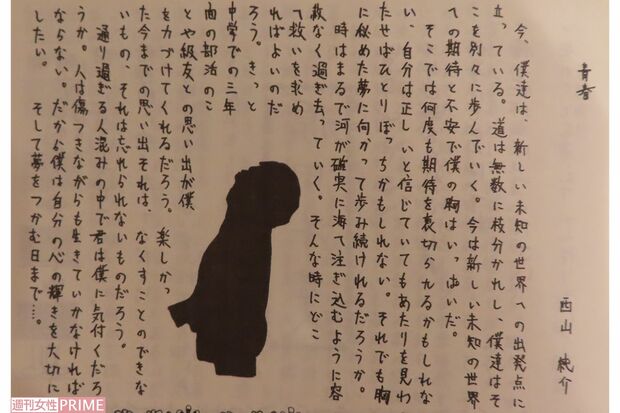 青春
西山 純介
今、僕達は、新しい未知の世界への出発点に
立っている。道は無数に枝分かれし、僕達はそ
こを別々に歩んでいく。今は新しい未知の世界
への期待と不安で僕の胸はいっぱいだ。
そこでは何度も期待を裏切られるかもしれな
い、自分は正しいと信じていてもあたりを見わ
たせばひとりぼっちかもしれない。それでも胸
に秘めた夢に向かって歩み続けれるだろうか。
時はまるで河が確実に海へ注ぎ込むように容
赦なく過ぎ去っていく。そんな時にどこ
へ救いを求め
ればよいのだ
ろう。きっと
中学での三年
間の部活のこ
とや級友との思い出が僕
を力づけてくれるだろう。楽しかっ
た今までの思い出それは、なくすことのできな
いもの、それは忘れられないものだろう。
通り過ぎる人混みの中で君は僕に気付くだろ
うか。人は傷つきながらも生きていかなければ
ならない。だから僕は自分の心の輝きを大切に
したい。そして夢をつかむ日まで…。
週刊女性PRIME